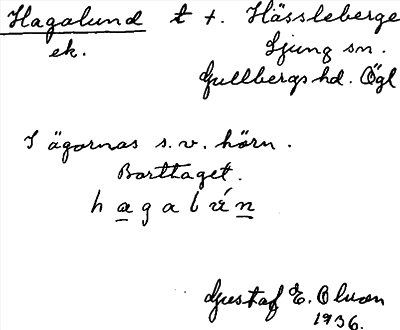 Hagalund t t. Hässleberge
ek. Ljung sn.
Gullbergs hd. Ögl
I ägornas s.v. hörn.
Borttaget.
Gustaf E. Olson
1936.